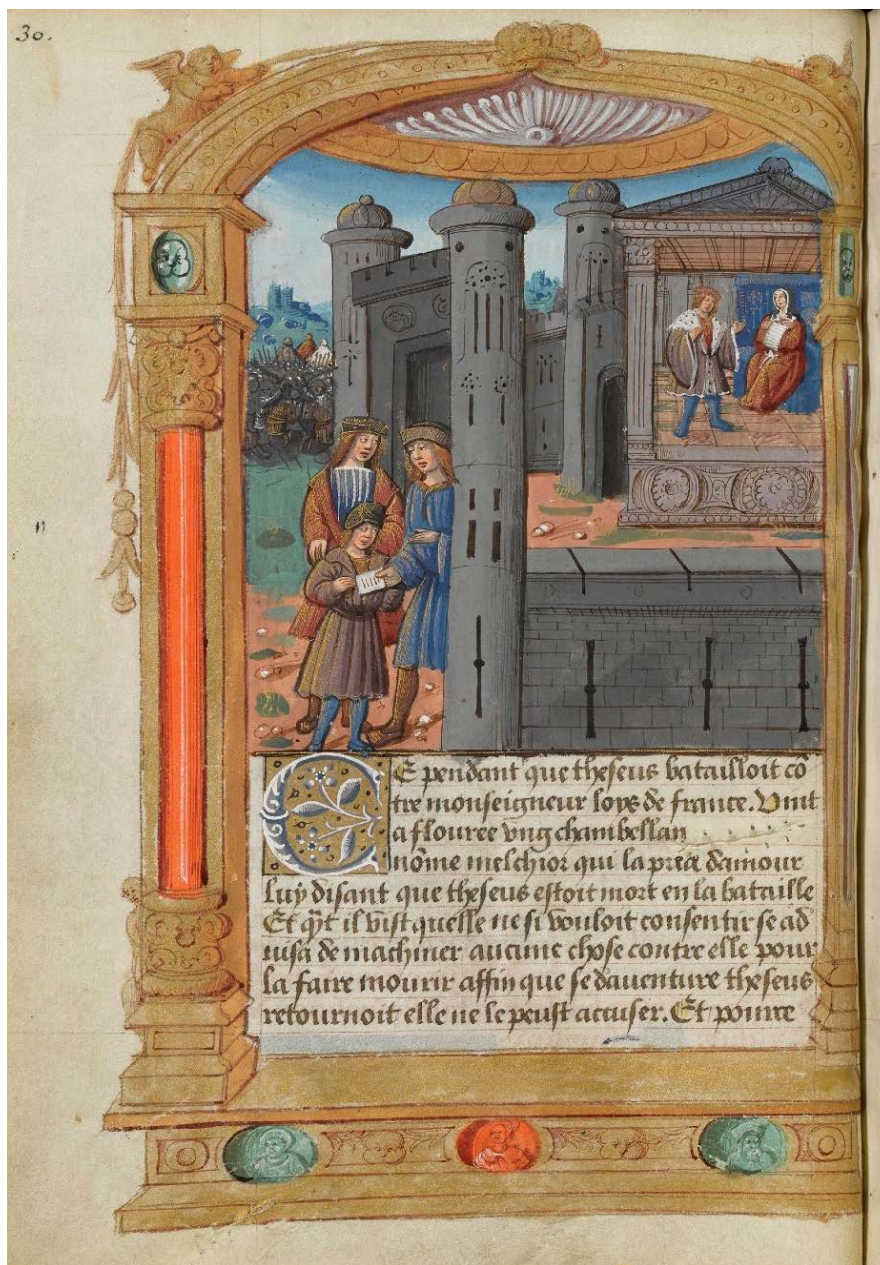 30.
CE pendant que theseus batailloit cō
tre monseigneur loys de france. Vint
a flouree vng chambellan
nōme melchior qui la pria damour
luy disant que theseus estoit mort en la bataille
Et qñt il vist quelle ne si vouloit consentir se ad
uisa de machiner aucune chose contre elle pour
la faire mourir affin que se dauenture theseus
retournoit elle ne le peust accuser. Et pource